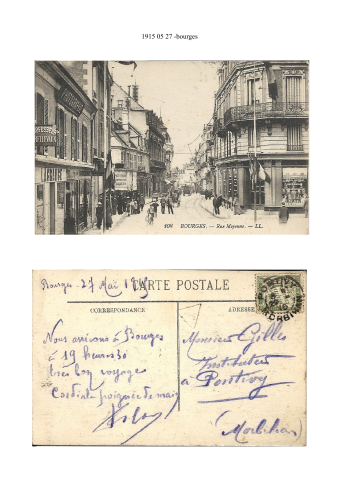 1915 05 27 -bourges
108 BOURGES. — Rue Moyenne. — LL.
Bourges - 27 Mai 1915
CARTE POSTALE
CORRESPONDANCE
ADRESSE
Nous arrivons à Bourges
à 19 heures 30
très bon voyage
Cordiale poignée de main
Monsieur Gilles
Instituteur
à Pontivy
(Morbihan)